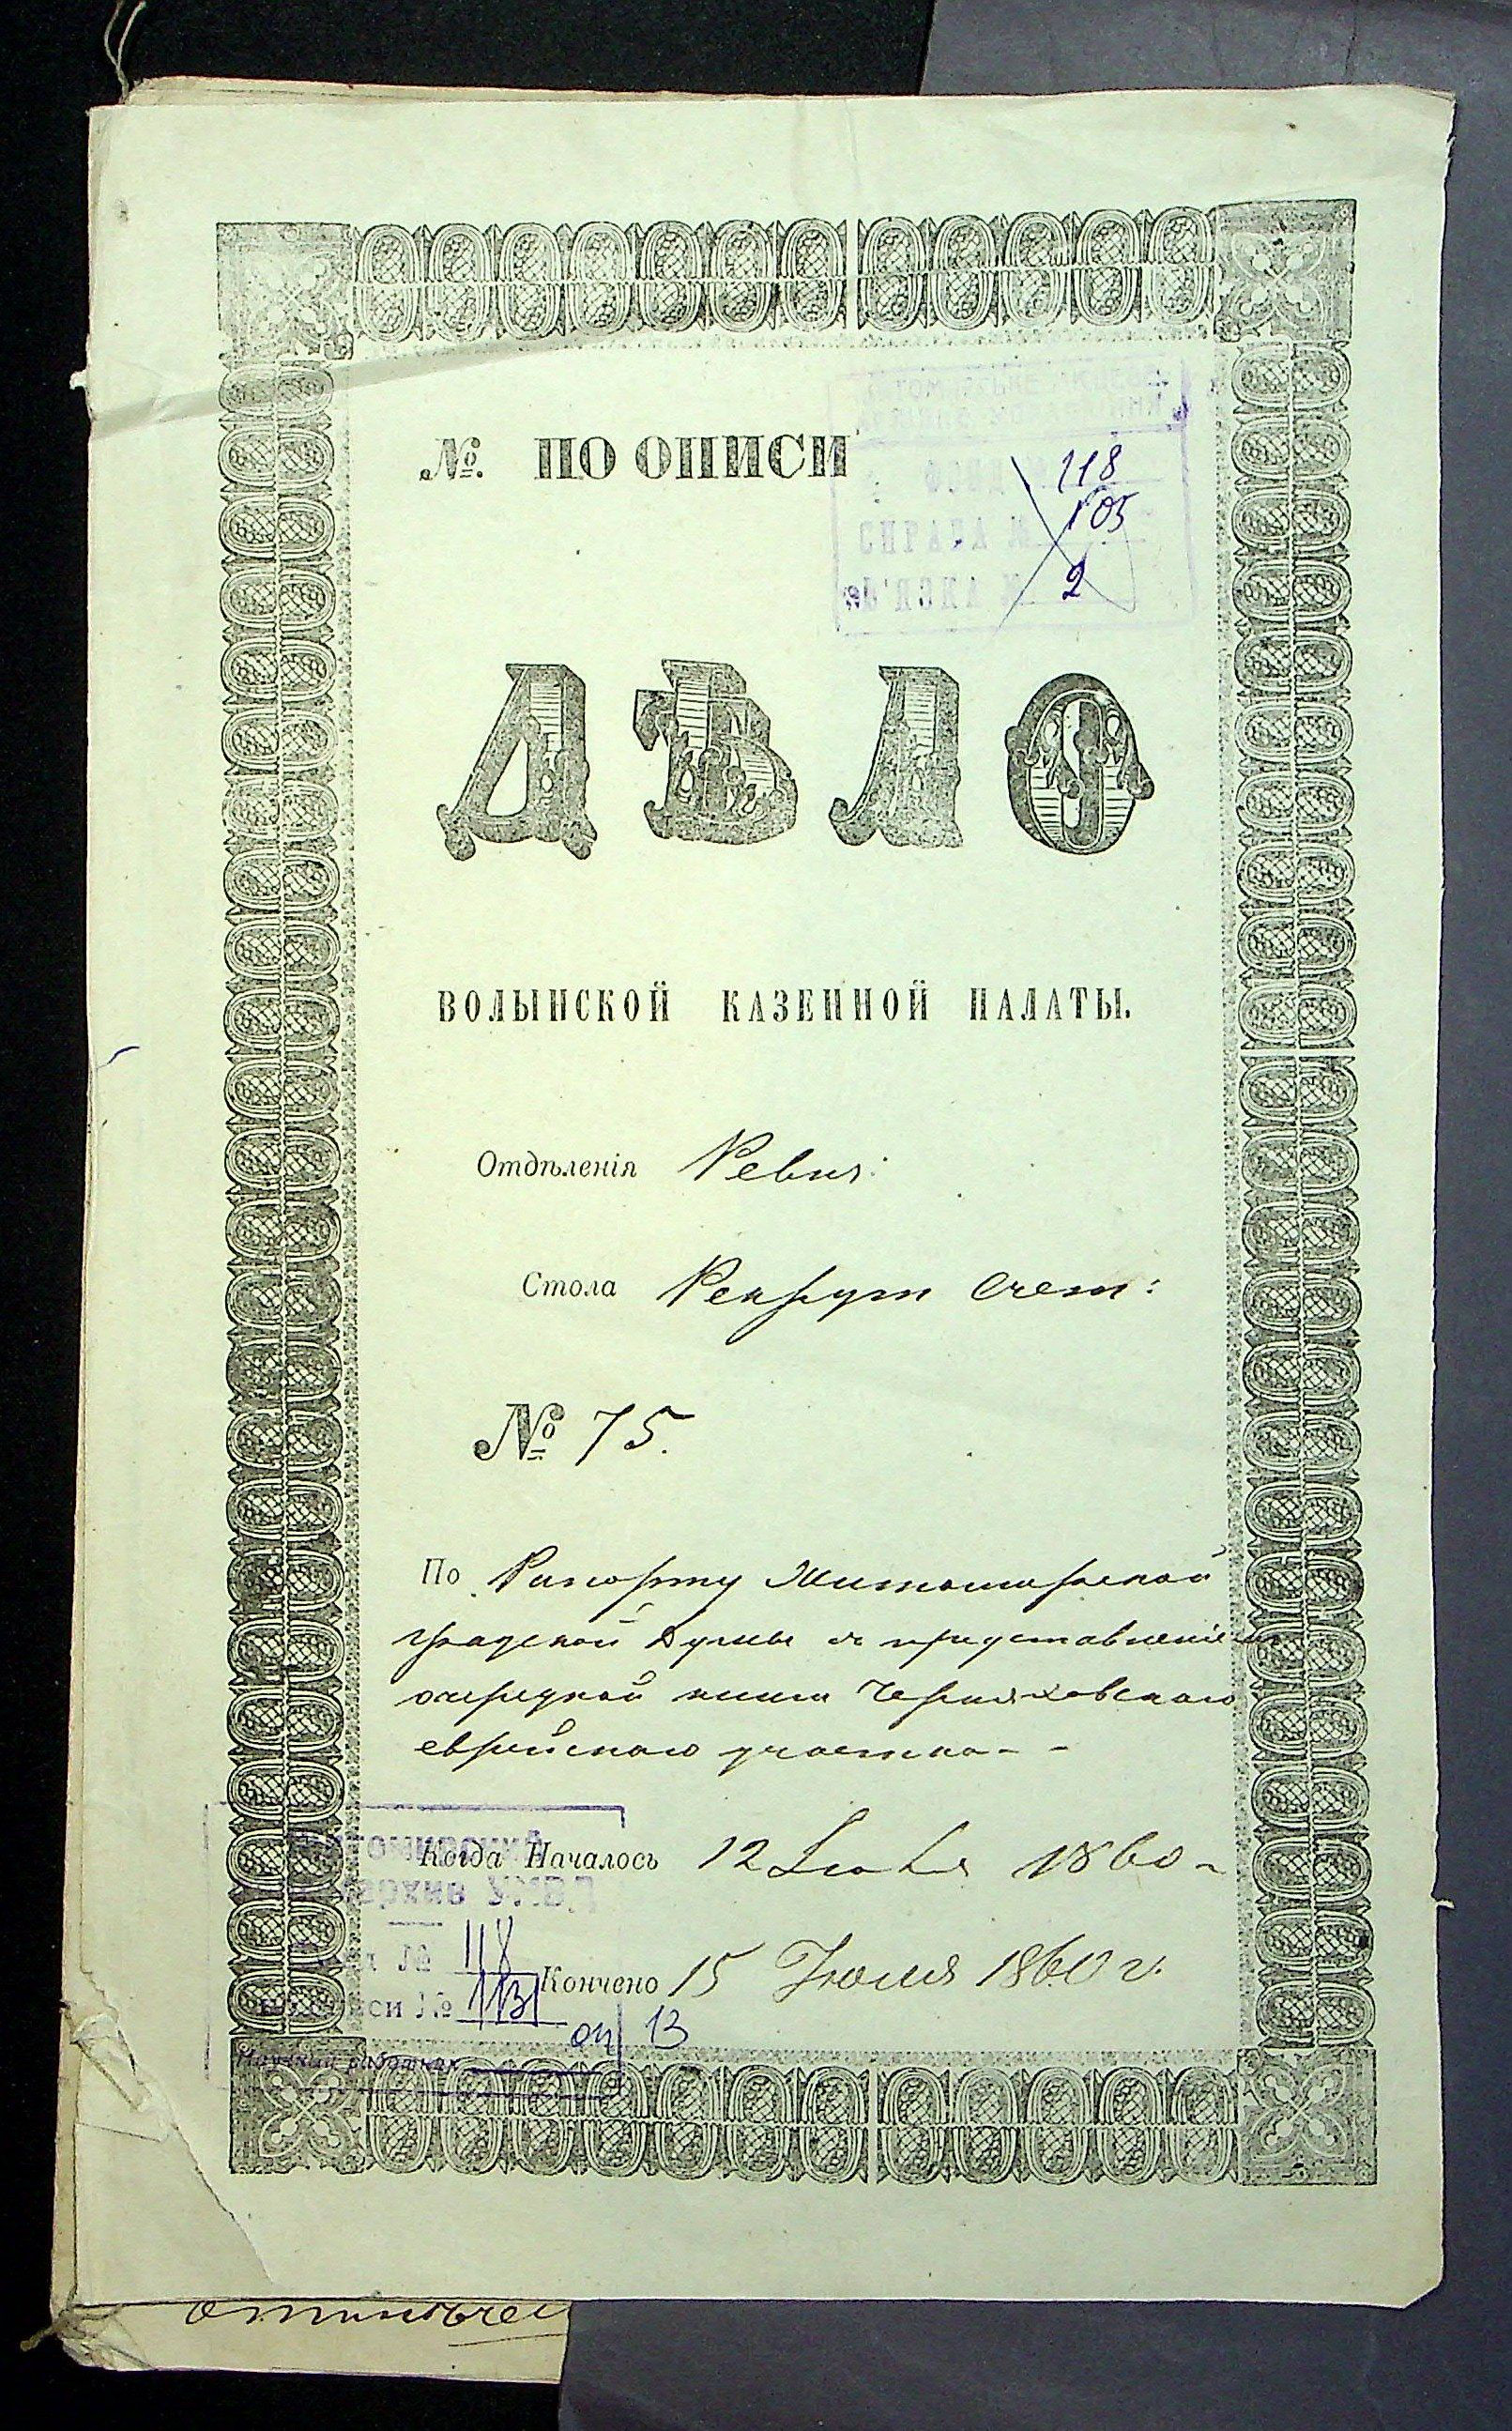 №. ПО ОПИСИ
ФОНД № 118
СПРАВА № 105
ЗВ'ЯЗКА № 2
ДѢЛО
ВОЛЫНСКОЙ КАЗЕННОЙ ПАЛАТЫ.
Отдѣленія Ревиз:
Стола Рекрут Счет:
№ 75.
По Рапорту Житомирской
градской Думы съ представленіемъ
очередной книги Черняховскаго
еврейскаго участка - -
Когда Началось 12 1860
Кончено 15 Іюля 1860 г.
архив УМВД
№ 118
описи № 1131
оп 13
Научный работник